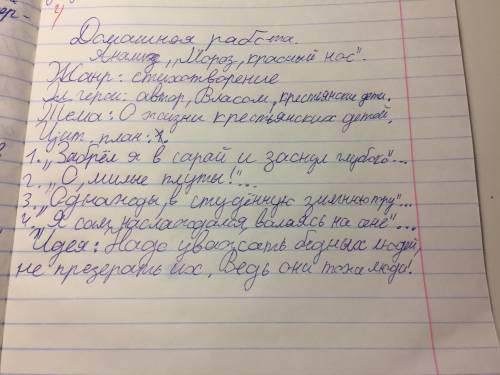 4
Домашняя работа.
Анализ „Мороз, красный нос".
Жанр: стихотворение
герои: автор, Власом, крестьянские дети.
Тема: О жизни крестьянских детей.
Цит. план:
1. „Забрёл я в сарай и заснул глубоко"...
2. „О, милые плуты!"...
3. „Однажды, в студённую зимнюю пору"...
4. „Я сам наслаждался, валяясь на сене"...
Идея: Надо уважать бедных людей,
не презерать их, Ведь они тоже люди!